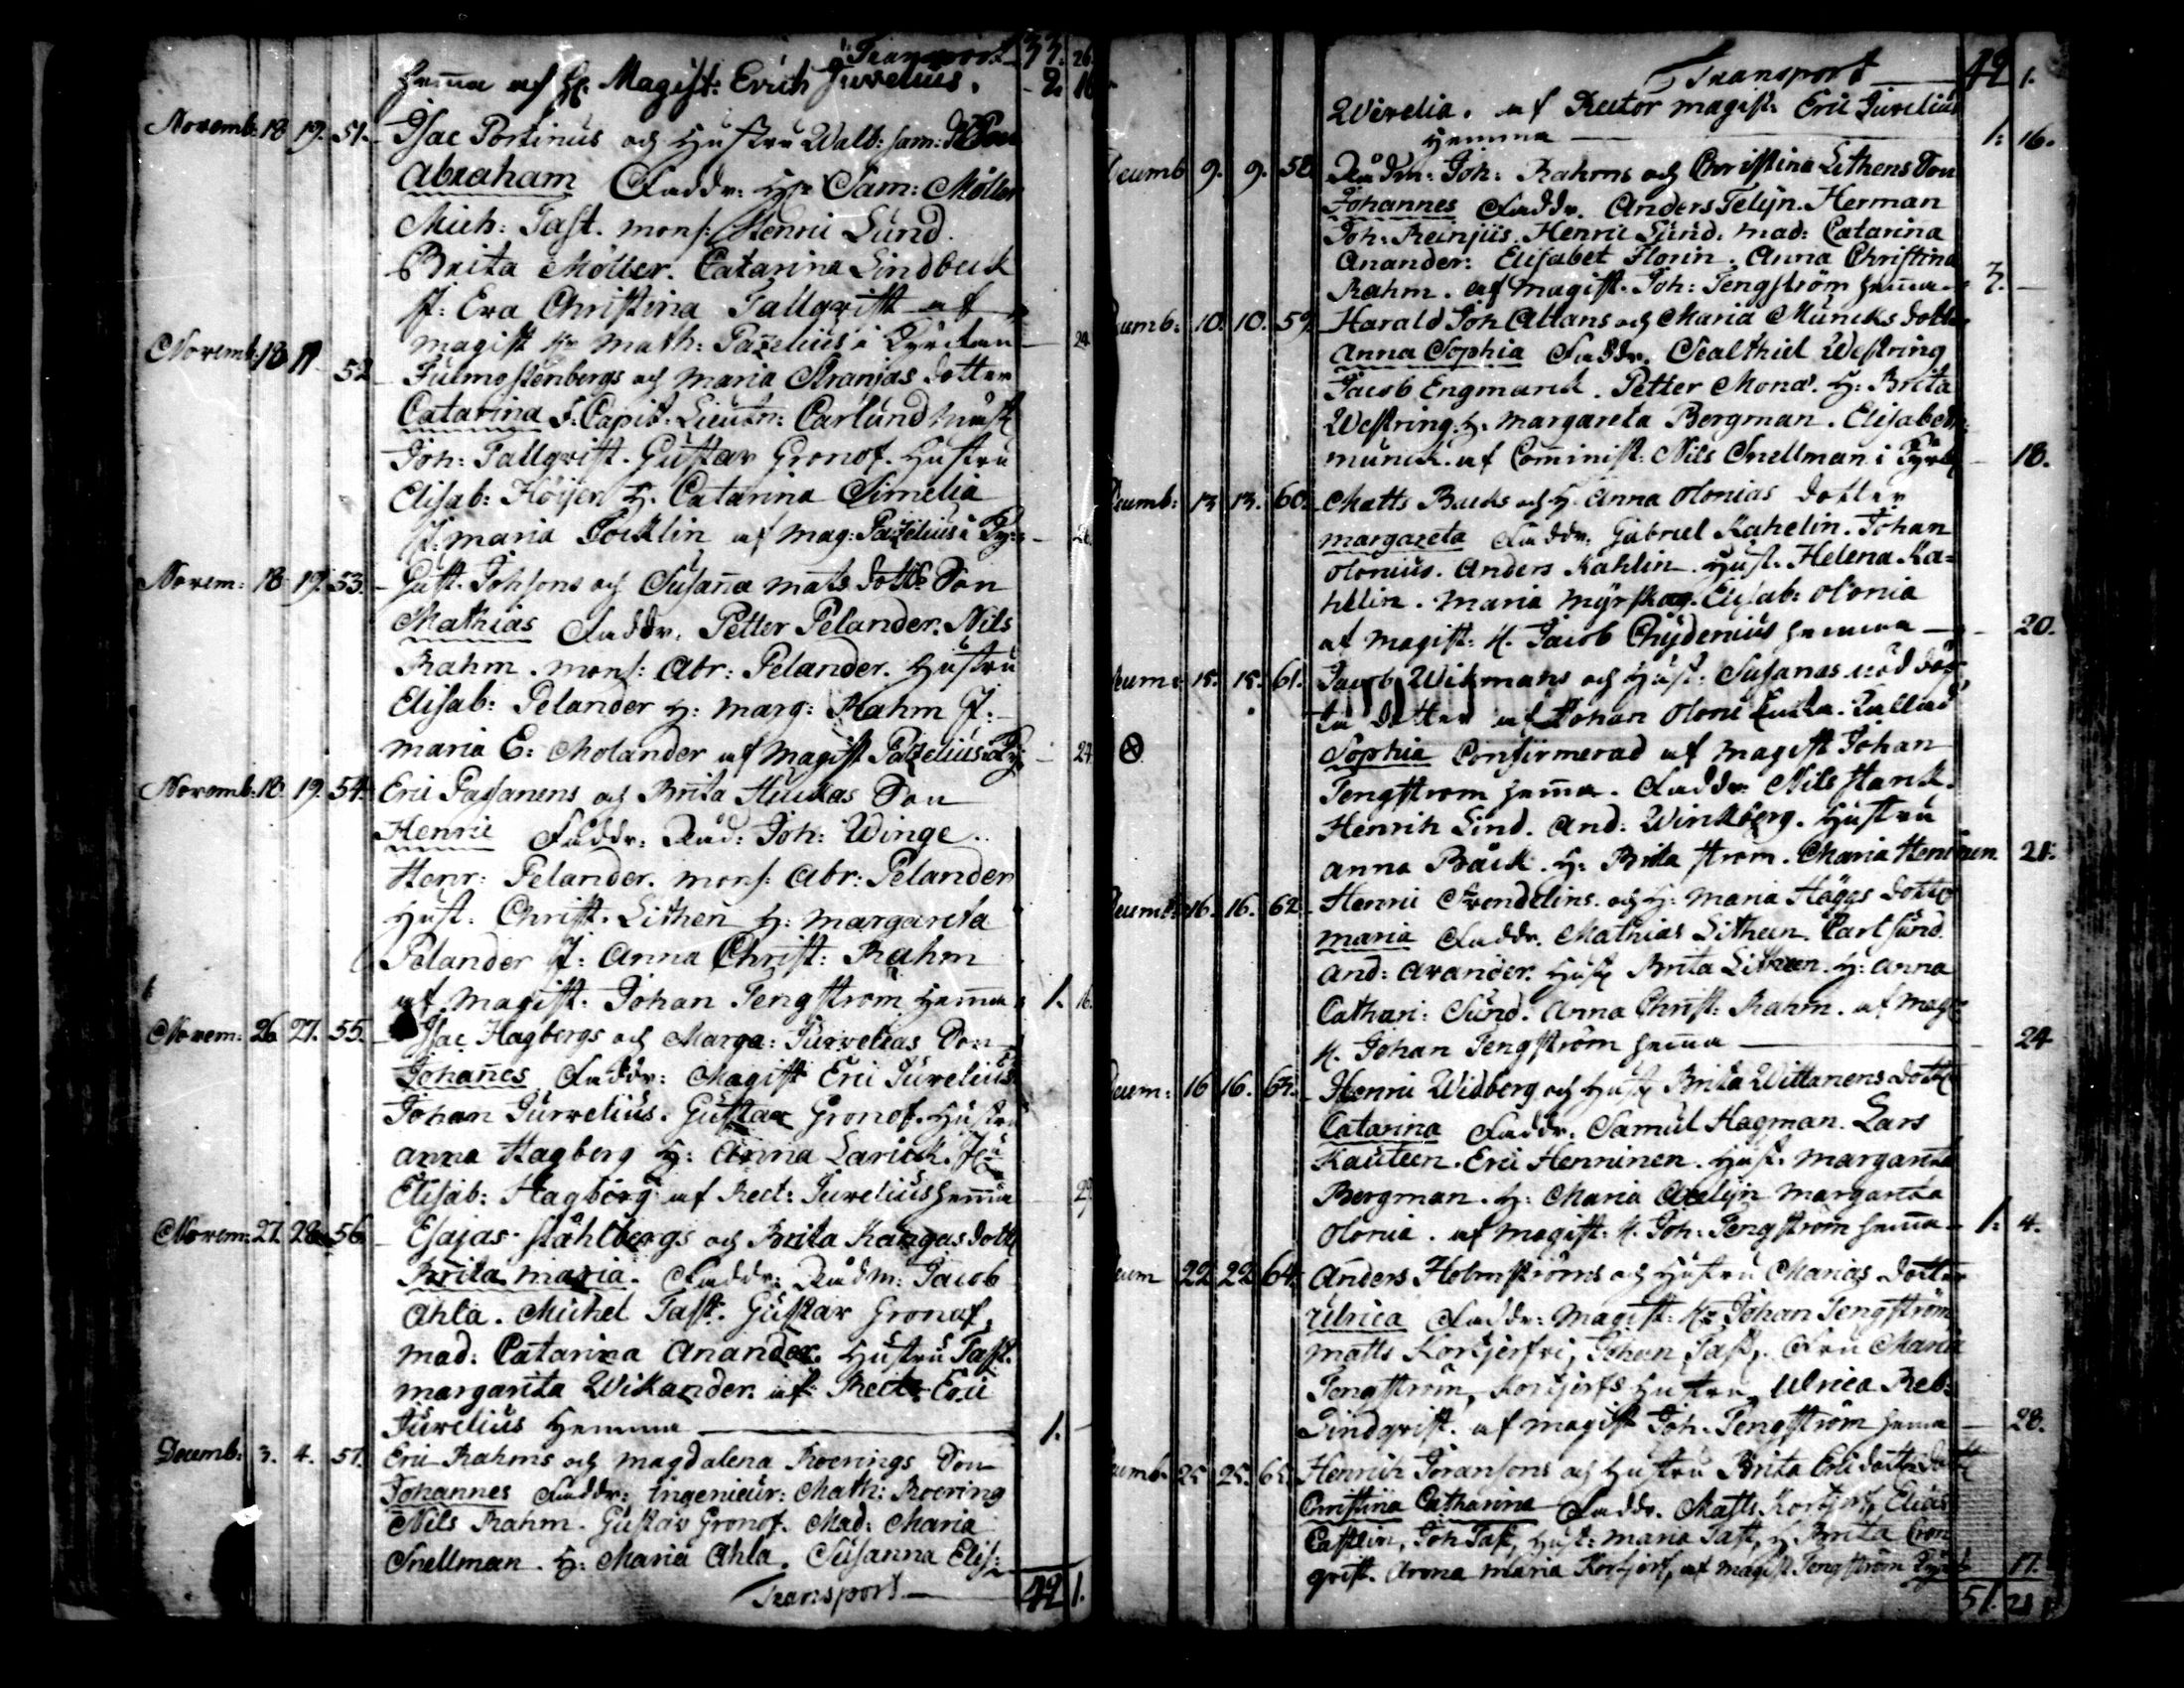 Transport 33. 26.
hemma af H: Magist: Erich Juvelius. 2. 16
Novemb: 18 19. 51. Isac Portinus och Hustru Walb: sam: d: Son
Abraham Faddr: Hr Sam: Möller
Mich: Tast. mons: Henric Lund.
Brita Möller. Catarina Lindbeck
J: Eva Christina Tallqvist af
magist Hr Math: Pazelius i Kyrckan 24.
Novemb: 18 19 52 och Maria Kranjas dotter
Catarina F: Capit: Lieutn: Carlund
Joh: Tallqvist. Gustav Gronof. Hustru
Elisab: Höijer H. Catarina Simelia
J: maria Tocklin af Mag: Pazelius i Ky:
Novem: 18 19. 53. Gust. Johsons och Susana mats dottr Son
Mathias Faddr. Petter Pelander. Nils
Rahm. mons: Abr: Pelander. Hustru
Elisab: Pelander H: Marg: Rahm J:
maria E: Molander af Magist Pazelius i Ky 24.
Novemb: 18. 19. 54. Eric Passanens och Brita Huckas Son
Henric Faddr: Råd: Joh: Winge.
Henr: Pelander. mons: Abr: Pelander
Hust: Christ: Lithen H: Margareta
Pelander J: Anna Christ: Rahm
af Magist: Johan Tengström Hema 1. 16.
Novem: 26 27. 55. Isac Hagbergs och Marga: Jurvelias Son
Johanes Faddr: Magist Eric Jurvelius
Johan Jurvelius. Gustav Gronof. Hustru
Anna Hagberg H: Anna Larick.
Elisab: Hagberg af Rect: Jurvelius hema 29
Novem: 27. 28 56 Esajas Ståhlbergs och Brita Kangas dott
Brita Maria. Faddr: Rådm: Jacob
Ahla. Michel Tast. Gustav Gronof.
mad: Catarina Anander. Hustru Tast.
margareta Wikander. af Rect: Eric
Jurvelius Hemma 1. -
Decemb: 3. 4. 57. Eric Rahms och Magdalena Roerings Son
Johannes Faddr: Ingenieur: Math: Roering
Nils Rahm. Gustav Gronof. Mad: Maria
Snellman. H: Maria Ahla. Susanna Elis:
Transport 42 1.
Transport 42 1.
af Rector Magist: Eric Jurelius
Hemma 1: 16.
Decemb 9. 9. 58 Rådm: Joh: Rahms och Christina Lithens Son
Johannes Faddr. Anders Telijn. Herman
Joh: Reinjüs. Henric Lund. Mad: Catarina
Anander: Elisabet Florin. Anna Christina
Rahm. af Magist. Joh: Tengström hema 3. -
Decemb: 10. 10. 59 Harald Joh Allans och Maria Muncks dotter
Anna Sophia Faddr. Sealthiel Westring
Jacob Engmarck. Petter Mona. H: Brita
Westring. H: Margareta Bergman. Elisabet
munck. af Comminist: Nils Snellman i Kyrck 18.
Decemb: 13 13. 60. Matts Backs och H. Anna Olonias dotter
Margareta Faddr. Gabriel Kahelin. Johan
Olonius. Anders Kahlin. Hust. Helena Ka=
helin. Maria Myrskog. Elisab: Olonia
af Magist: H. Jacob Chydenius hemma 20.
Decem: 15. 15. 61. Jacob Wikmans och Hust: Susanas nöd döp
ta dotter af Johan Kallad
⊗ Sophia Confirmerad af Magist Johan
Tengstrom hema. Faddr: Nils Starck.
Henrik Lind. And: Winckberg. Hustru
Anna Bäck. H: Brita Strom. Maria Heninen 21.
Decemb 16. 16. 62. Henric Frendelins. och H: Maria Häggs dotter
Maria Faddr. Mathias Litheen. Carl Sund
And: Avander. Hust Brita Litheen. H: Anna
Cathari: Sund. Anna Christ: Rahm. af Mag:
H. Johan Tengström hema 24
Decem: 16 16. 63. Henric Widberg och Hust Brita Wittanens dott
Catarina Faddr. Samul Hagman. Lars
Kauteen. Eric Henninen. Hust. Margareta
Bergman. H: Maria Margareta
Olonia. af Magist: H. Joh: Tengström hema 1: 4.
Decem 22 22 64. Anders Holmströms och Hustru Marias dotter
Ulrica Faddr: Magist: Hr Johan Tengström
Matts Kortjerfvi, Johan Tast. Fru Maria
Tengström, Kortjerfs Hustru, Ulrica Reb:
Lindqvist. af Magist Joh: Tengström hema 28.
Decemb. 25 25. 65. Henrich Joransons och Hustru Brita Ericdotter dott
Christina Catharina Faddr. Matts Kortjerf, Elias
Castlin, Joh Tast, Hust: Maria Tast, H Brita Cron
qvist. Anna Maria Kortjerf, af Magist Tengström 17.
51. 21